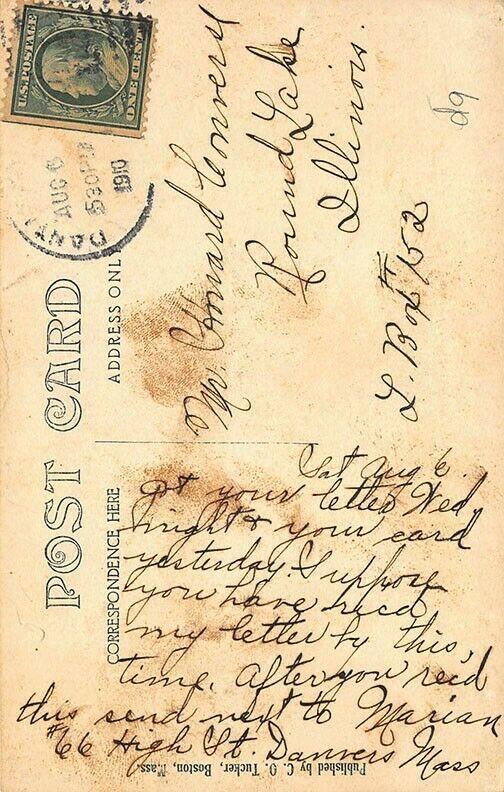 U.S. POSTAGE
ONE CENT
DANV
AUG 6
530 PM
1910
POST CARD
ADDRESS ONL
CORRESPONDENCE HERE
Mr. Howard Convers
Round Lake
Illinois.
L. Box # 152
d9
Sat Aug 6.
got your letter Wed
night & your card
yesterday. I suppose
you have recd
my letter by this,
time. After you recd
this send next to Marian
#66 High St. Danvers Mass
Published by C. O. Tucker, Boston, Mass.